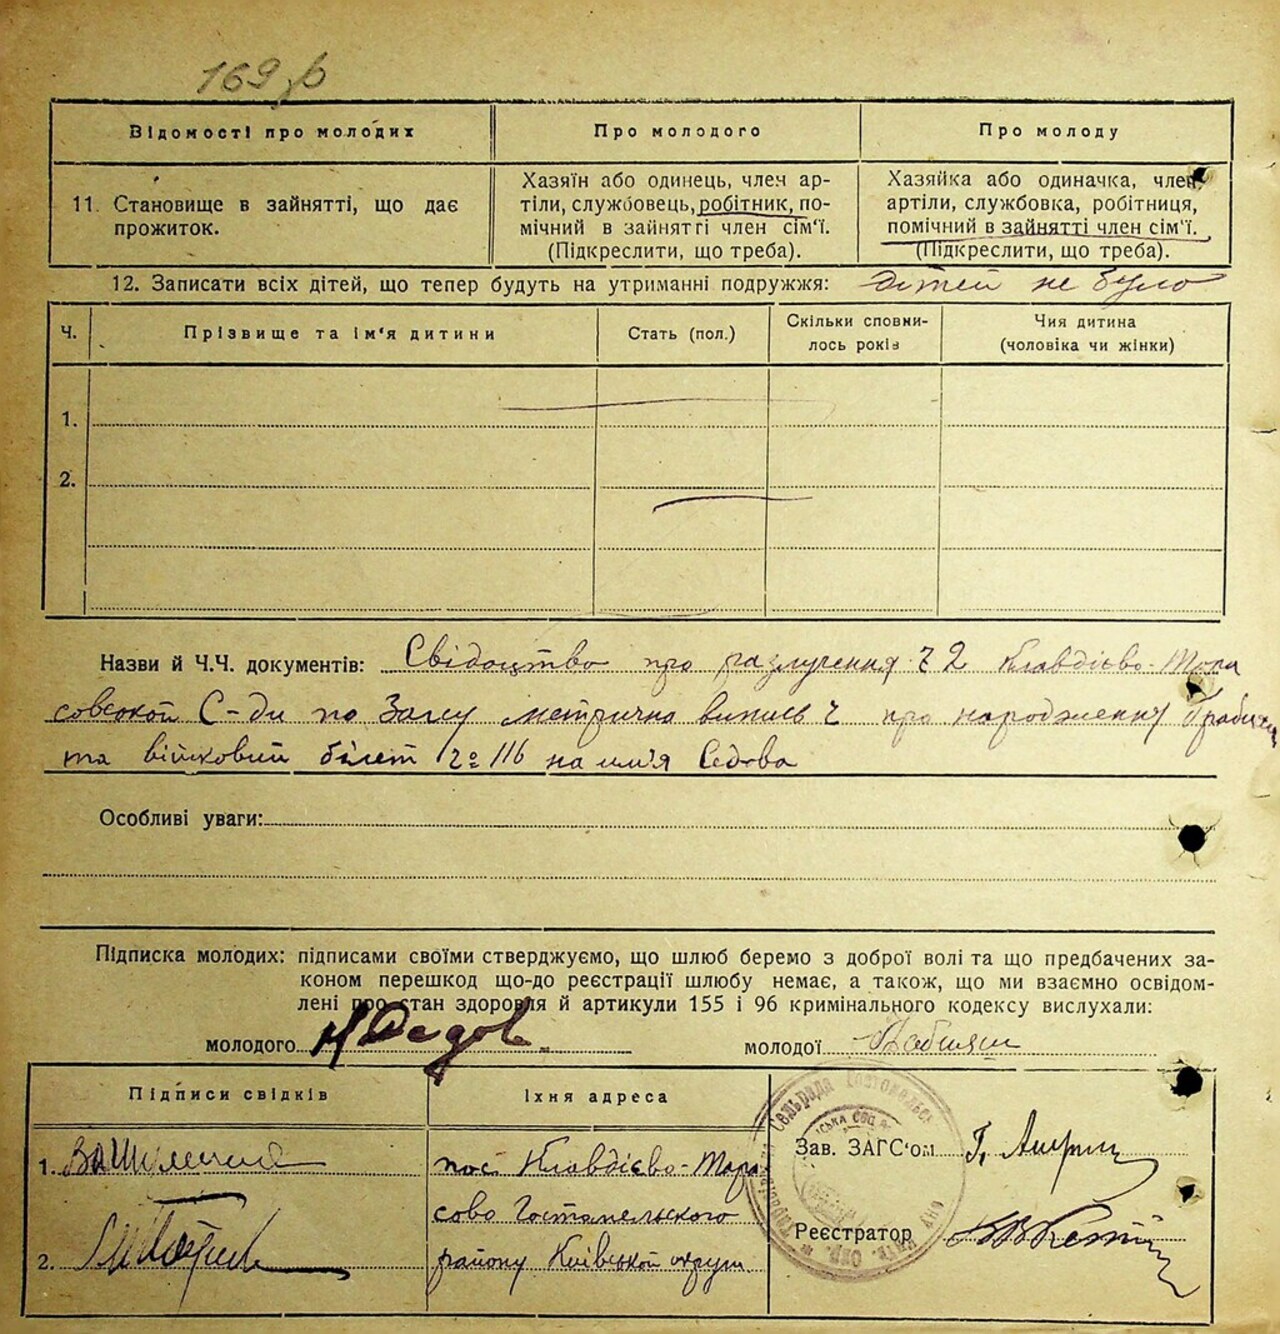 169 зв
Відомості про молодих
Про молодого
Про молоду
11. Становище в зайнятті, що дає
прожиток.
Хазяїн або одинець, член ар-
тіли, службовець, робітник, по-
мічний в зайнятті член сім'ї.
(Підкреслити, що треба).
Хазяйка або одиначка, член
артіли, службовка, робітниця,
помічний в зайнятті член сім'ї.
(Підкреслити, що треба).
12. Записати всіх дітей, що тепер будуть на утриманні подружжя: дітей не було
Ч.
Прізвище та ім'я дитини
Стать (пол.)
Скільки сповни-
лось років
Чия дитина
(чоловіка чи жінки)
1.
2.
Назви й Ч.Ч. документів: Свідоцтво про разлучення ч 2 Клавдієво-Тора
совської С-ди по Загсу метрична випись ч про народження
та війсковий білет № 116 на им'я Седова
Особливі уваги:
Підписка молодих: підписами своїми стверджуємо, що шлюб беремо з доброї волі та що предбачених за-
коном перешкод що-до реєстрації шлюбу немає, а також, що ми взаємно освідом-
лені про стан здоровля й артикули 155 і 96 кримінального кодексу вислухали:
молодого Седов
молодої
Підписи свідків
Їхня адреса
1.
пос. Клавдієво-Тара
сово Гостомельского
2.
району Київської округи
Зав. ЗАГС'ом
Реєстратор